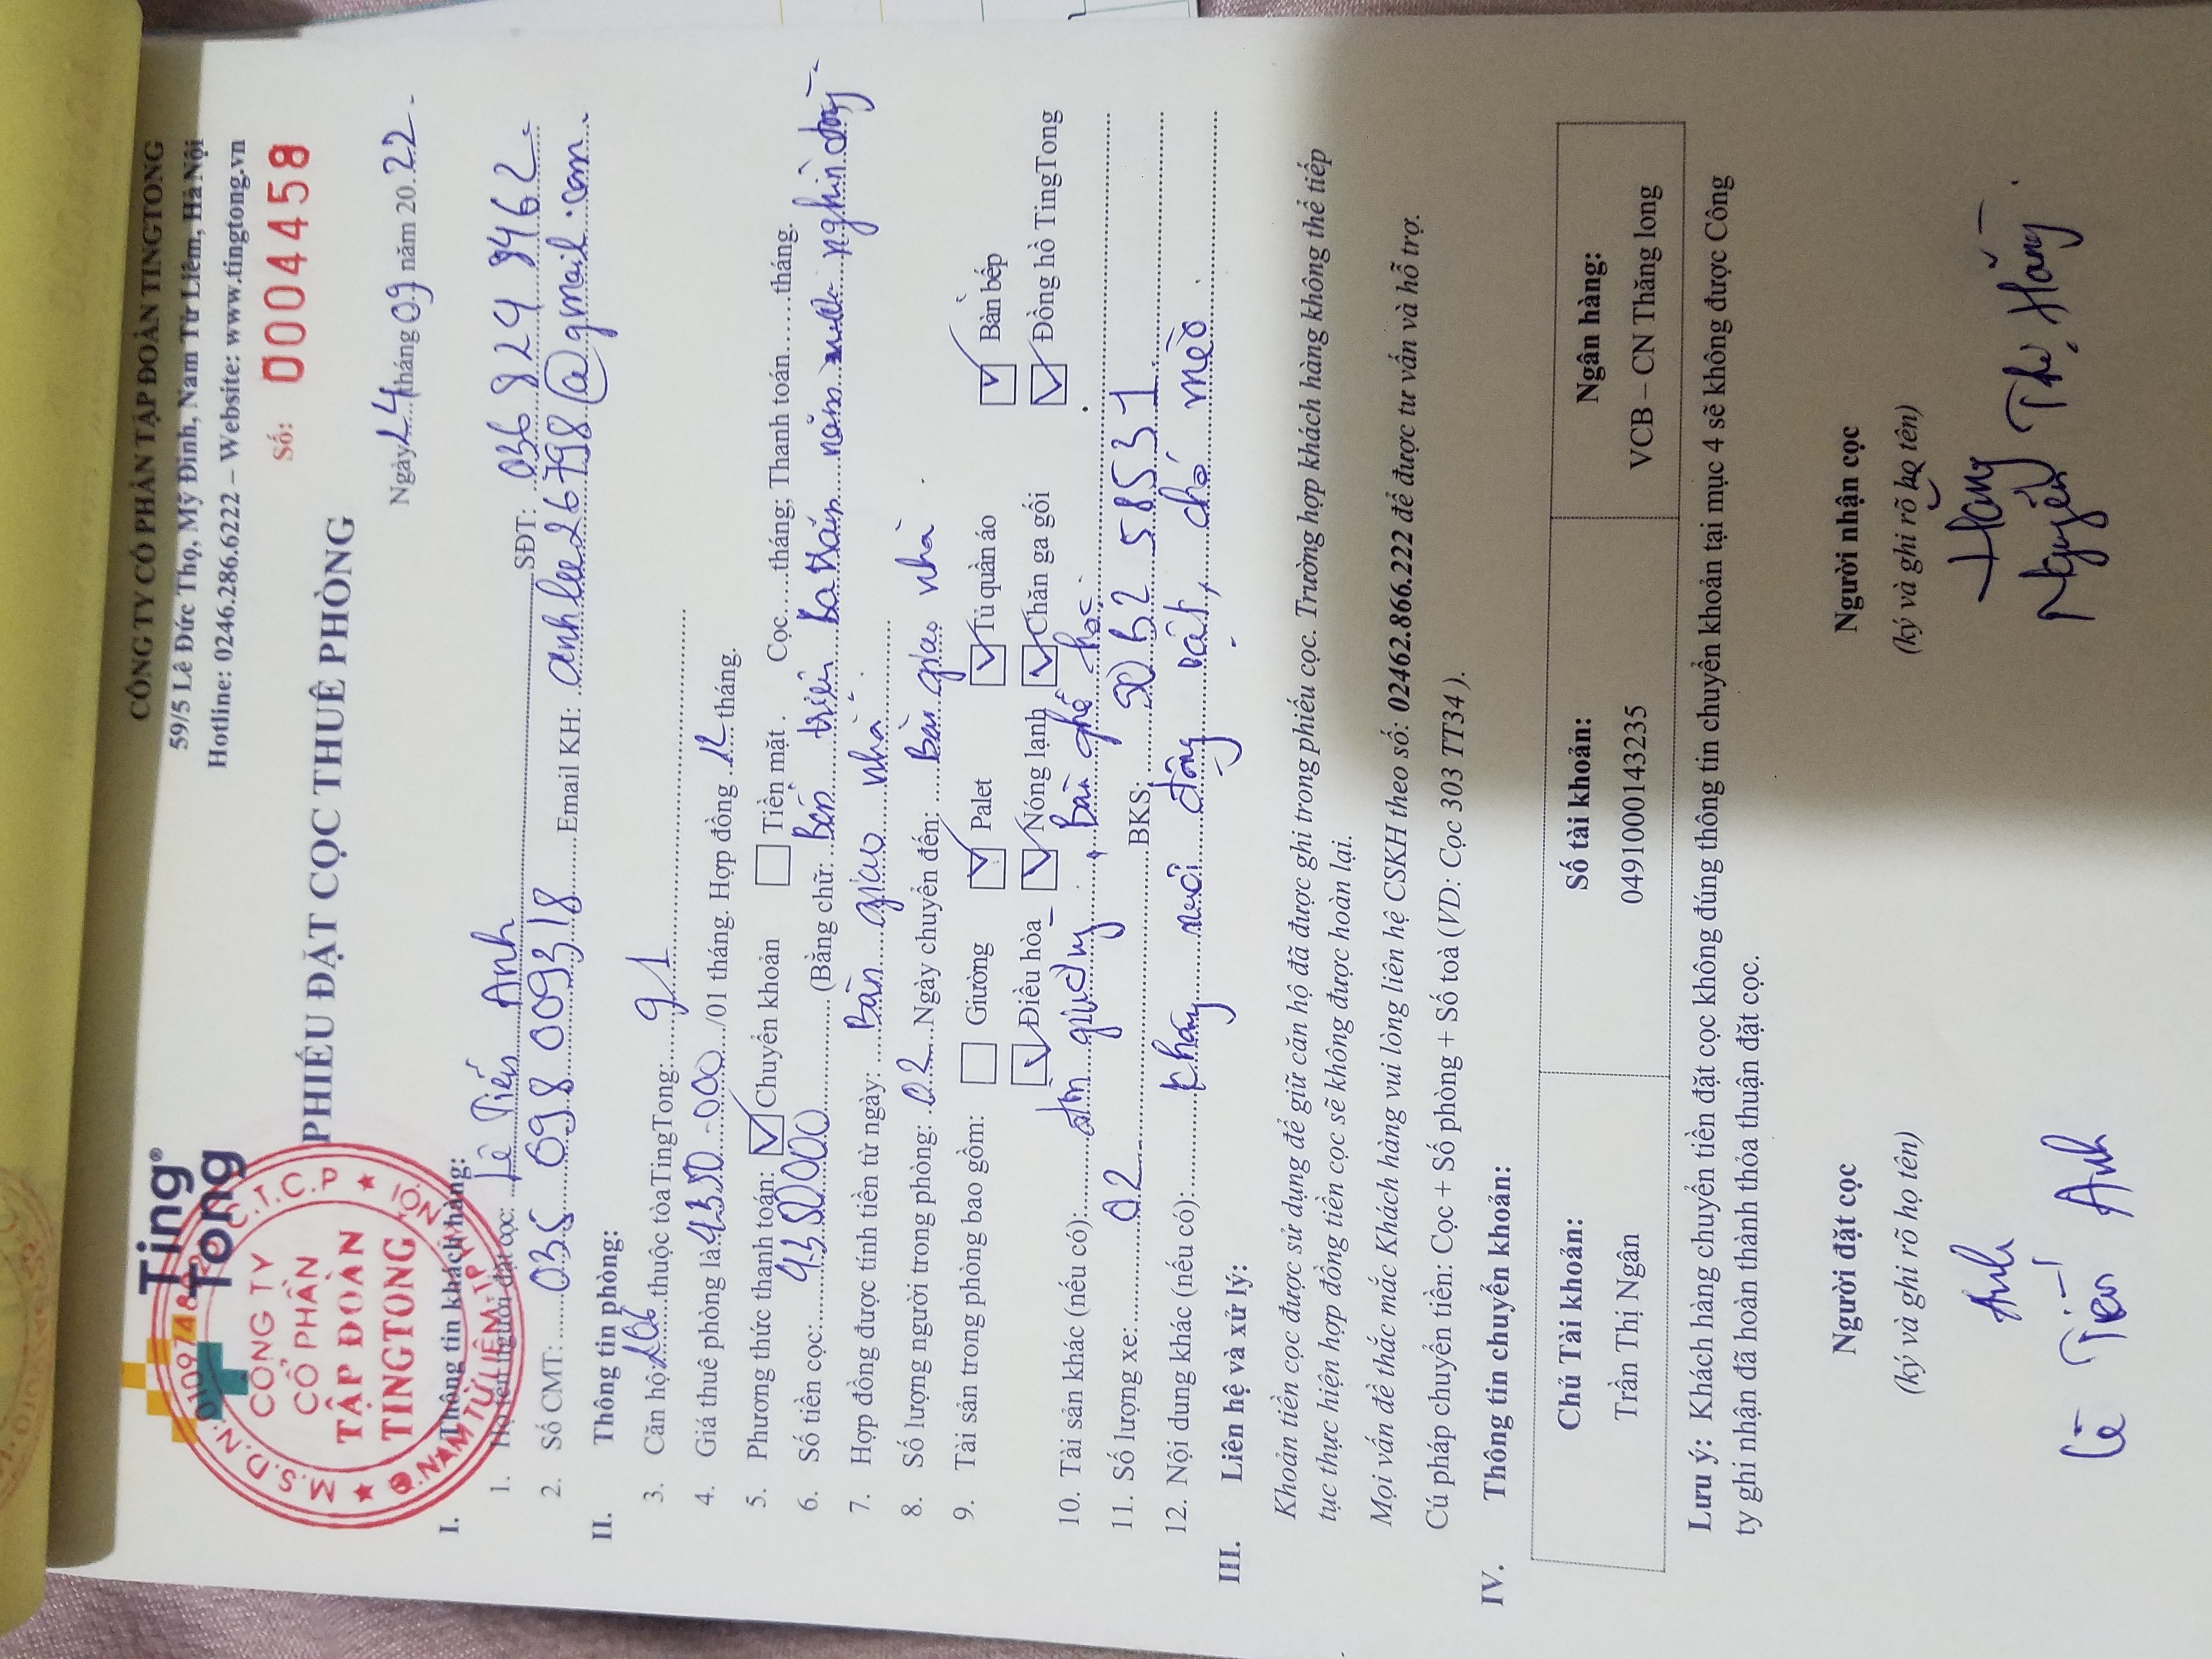 CÔNG TY CỔ PHẦN TẬP ĐOÀN TINGTONG
59/5 Lê Đức Thọ, Mỹ Đình, Nam Từ Liêm, Hà Nội
Hotline: 0246.286.6222 – Website: www.tingtong.vn
Ting® Tong
Số: 0004458
PHIẾU ĐẶT CỌC THUÊ PHÒNG
Ngày 24 tháng 09 năm 2022.
M.S.D.N: C.T.C.P
CÔNG TY
CỔ PHẦN
TẬP ĐOÀN
TINGTONG
Q. NAM TỪ LIÊM
I. Thông tin khách hàng:
1. Họ tên người đặt cọc: Lê Tiến Anh SĐT: 036 824 9462
2. Số CMT: 035 098 009318 Email KH: anhlee26798@gmail.com
II. Thông tin phòng:
3. Căn hộ: 206 thuộc tòa TingTong: 91
4. Giá thuê phòng là: 4350.000/01 tháng. Hợp đồng 12 tháng.
5. Phương thức thanh toán: ☑ Chuyển khoản ☐ Tiền mặt. Cọc....tháng; Thanh toán....tháng.
6. Số tiền cọc: 4350000 (Bằng chữ: Bốn triệu ba trăm năm mươi nghìn đồng
7. Hợp đồng được tính tiền từ ngày: Bàn giao nhà.
8. Số lượng người trong phòng: 02 Ngày chuyển đến: Bàn giao nhà.
9. Tài sản trong phòng bao gồm: ☐ Giường ☑ Palet ☑ Tủ quần áo ☑ Bàn bếp
☑ Điều hòa ☑ Nóng lạnh ☑ Chăn ga gối ☑ Đồng hồ TingTong
10. Tài sản khác (nếu có): đệm, Bàn ghế học.
11. Số lượng xe: 02 BKS: 90B2 58531
12. Nội dung khác (nếu có): không nuôi động vật, chó mèo.
III. Liên hệ và xử lý:
Khoản tiền cọc được sử dụng để giữ căn hộ đã được ghi trong phiếu cọc. Trường hợp khách hàng không thể tiếp
tục thực hiện hợp đồng tiền cọc sẽ không được hoàn lại.
Mọi vấn đề thắc mắc Khách hàng vui lòng liên hệ CSKH theo số: 02462.866.222 để được tư vấn và hỗ trợ.
Cú pháp chuyển tiền: Cọc + Số phòng + Số toà (VD: Cọc 303 TT34).
IV. Thông tin chuyển khoản:
Chủ Tài khoản: Số tài khoản: Ngân hàng:
Trần Thị Ngân 0491000143235 VCB – CN Thăng long
Lưu ý: Khách hàng chuyển tiền đặt cọc không đúng thông tin chuyển khoản tại mục 4 sẽ không được Công
ty ghi nhận đã hoàn thành thỏa thuận đặt cọc.
Người đặt cọc Người nhận cọc
(ký và ghi rõ họ tên) (ký và ghi rõ họ tên)
Anh Hang
Lê Tiến Anh Nguyễn Thị Hằng